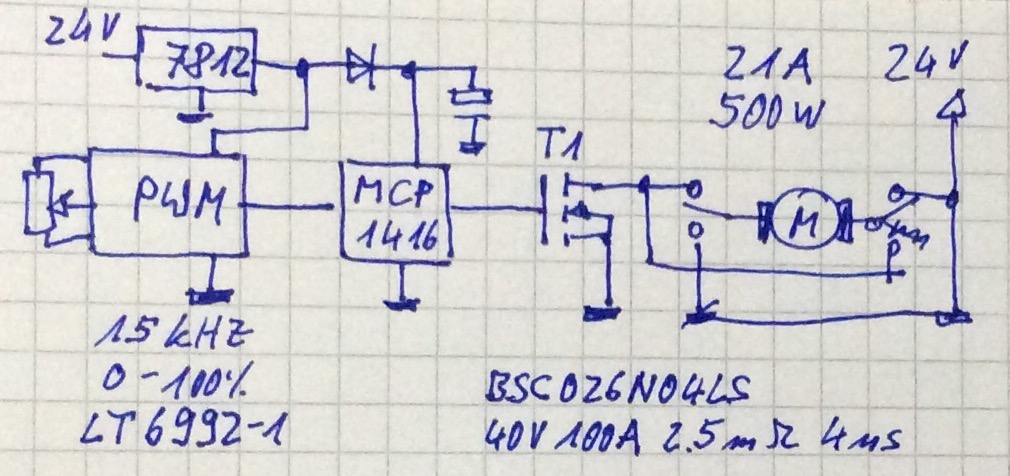 24V
7812
21A 24V
500W
T1
PWM
MCP
1416
M
15 kHz
0-100%
LT6992-1
BSC026N04LS
40V 100A 2.5mΩ 4ns